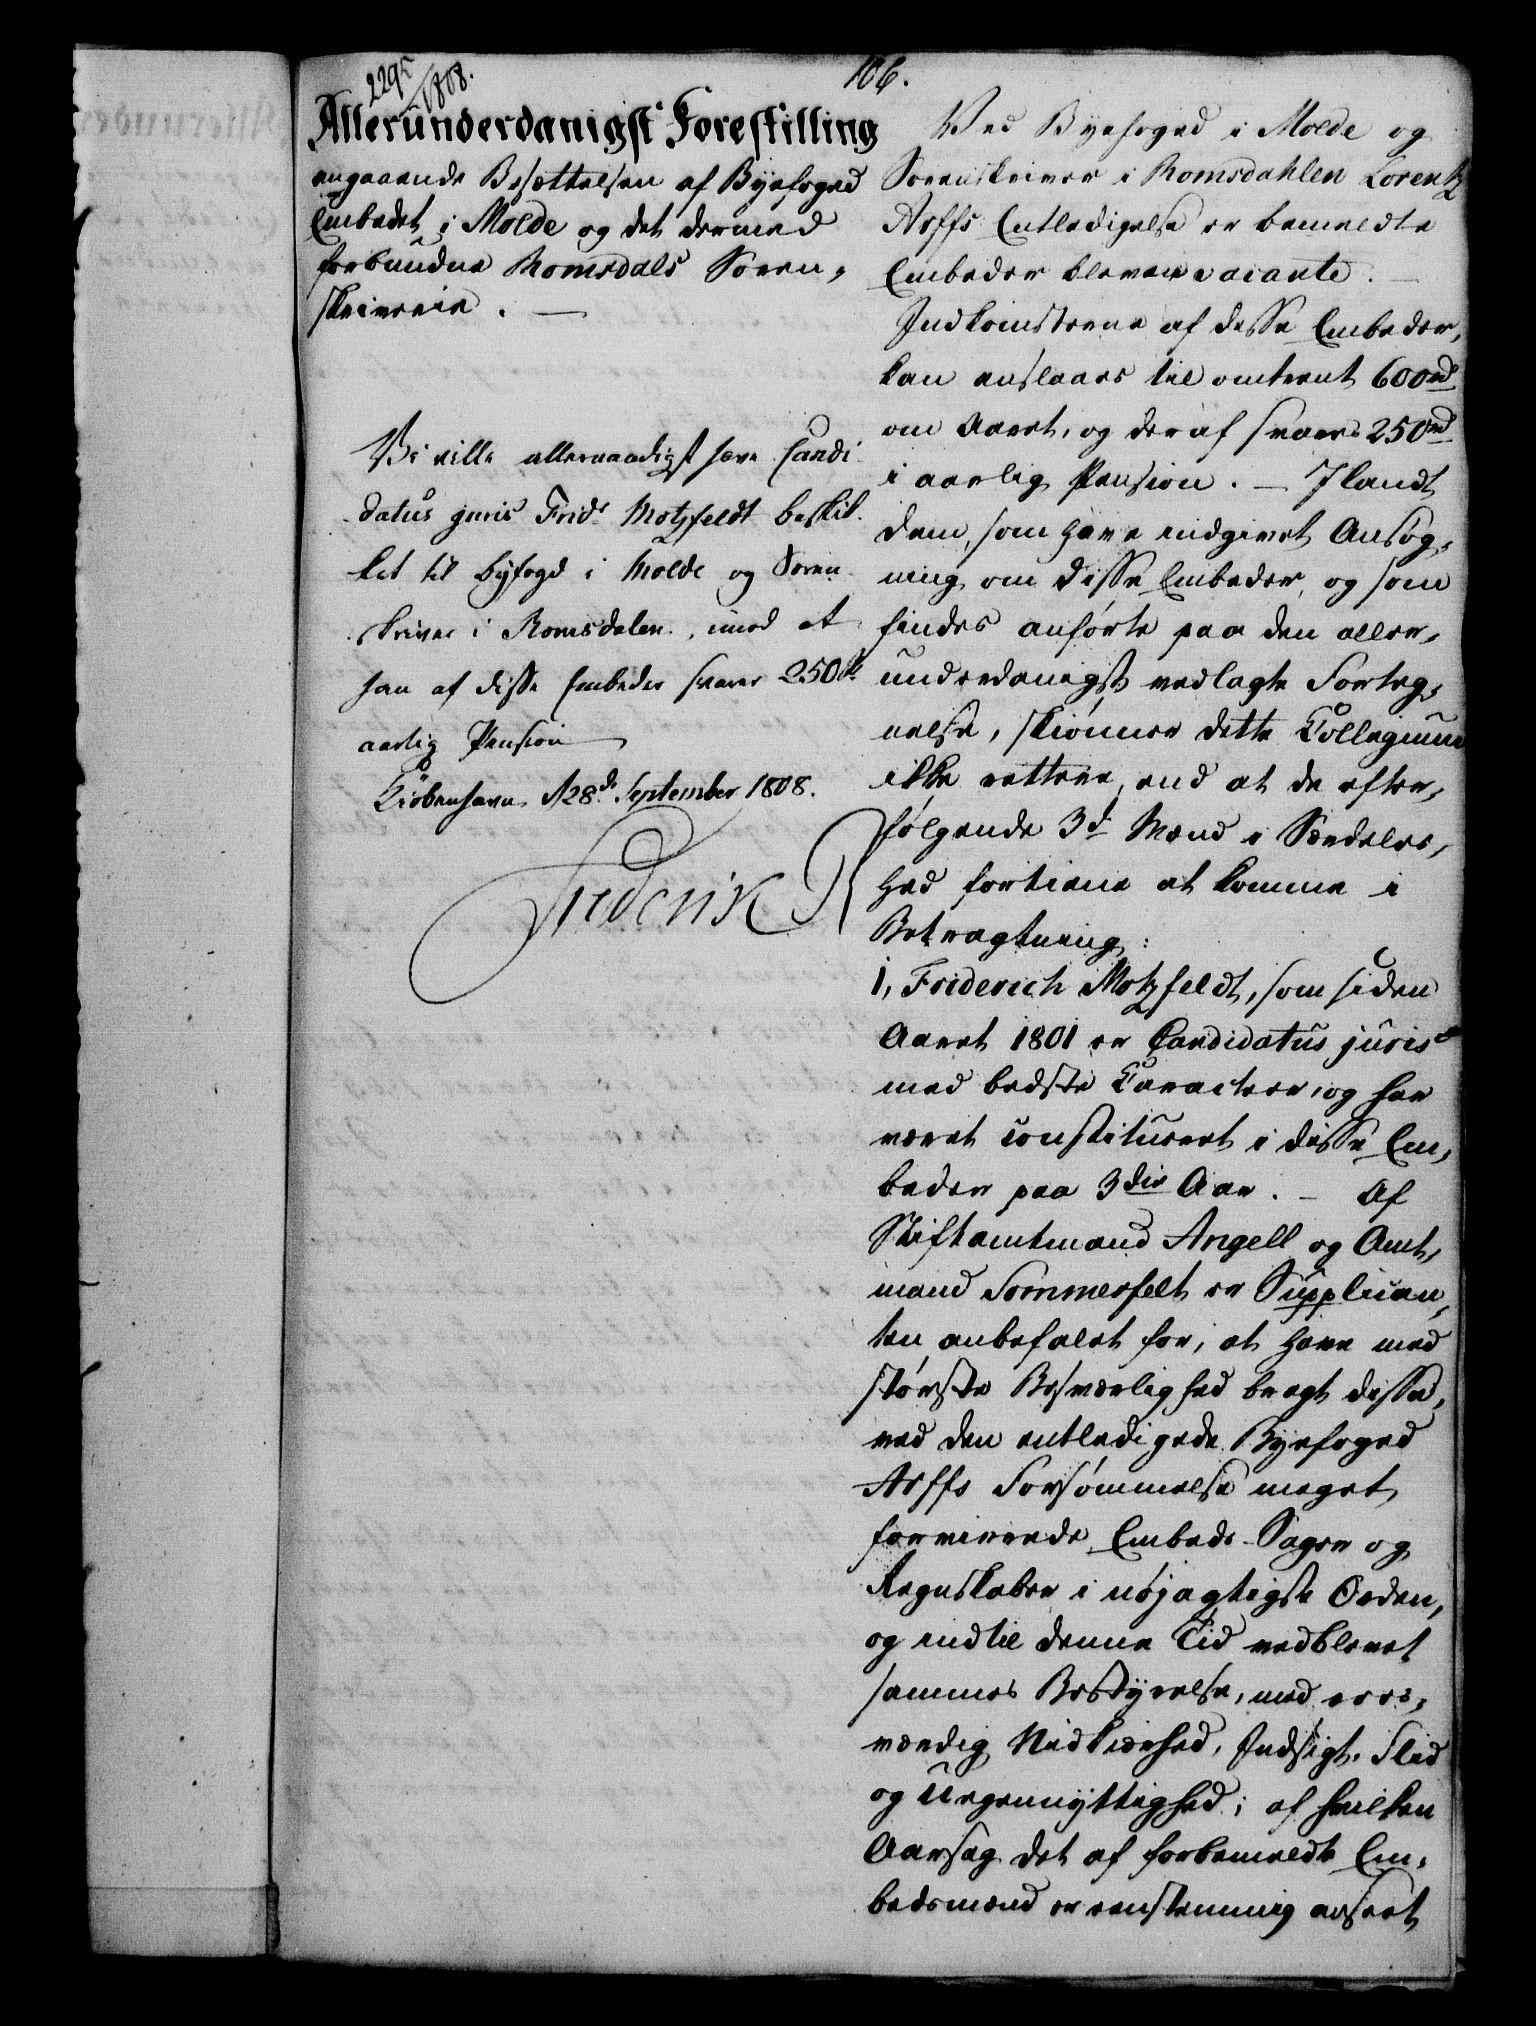 2295/1808.
106.
Allerunderdanigst Forestilling
angaaende Besættelsen af Byefoged
Embedet i Molde og det dermed
forbundne Romsdals Soren-
skriverie. —
Vi ville allernaadigst have Candi
datus juris Fridr Motzfeldt beskik
ket til byfogd i Molde og Soren
skriver i Romsdalen, imod at
han af disse Embeder svarer 250 rd
aarlig Pension
Kiöbenhavn d 28de September 1808.
Frederik R
Ved Byefoged i Molde og
Sorenskriver i Romsdahlen Lorentz
Arffs Entledigelse er bemeldte
Embeder bleven vacante. —
Indkomsterne af disse Embeder,
kan anslaaes til omtrent 600 rd
om Aaret, og deraf svares 250 rd
i aarlig Pension. — Iblandt
dem, som have indgivet Ansøg-
ning om disse Embeder, og som
findes anførte paa den aller-
underdanigst vedlagte Forteg-
nelse, skiønner dette Collegium
ikke rettere, end at de efter-
følgende 3de Mænd i Særdeles-
hed fortiene at komme i
Betragtning:
1, Friderich Motzfeldt, som siden
Aaret 1801 er Candidatus juris
med bedste Caracteer, og har
været constitueret i disse Em-
beder paa 3die Aar. — Af
Stiftamtmand Angell og Amt-
mand Sommerfelt er Supplican-
ten anbefalet for, at have med
største Besværlighed bragt disse,
ved den entledigede Byefoged
Arffs Forsømmelse meget
forvirrede Embeds-Sager og
Regnskaber i nøjagtigste Orden,
og indtil denne Tid vedblevet
sammes Bestyrelse, med roes-
værdig Nidkierhed, Indsigt, Flid
og Uegennyttighed; af hvilken
Aarsag det af forbemeldte Em-
bedsmænd er eenstemmig anseet